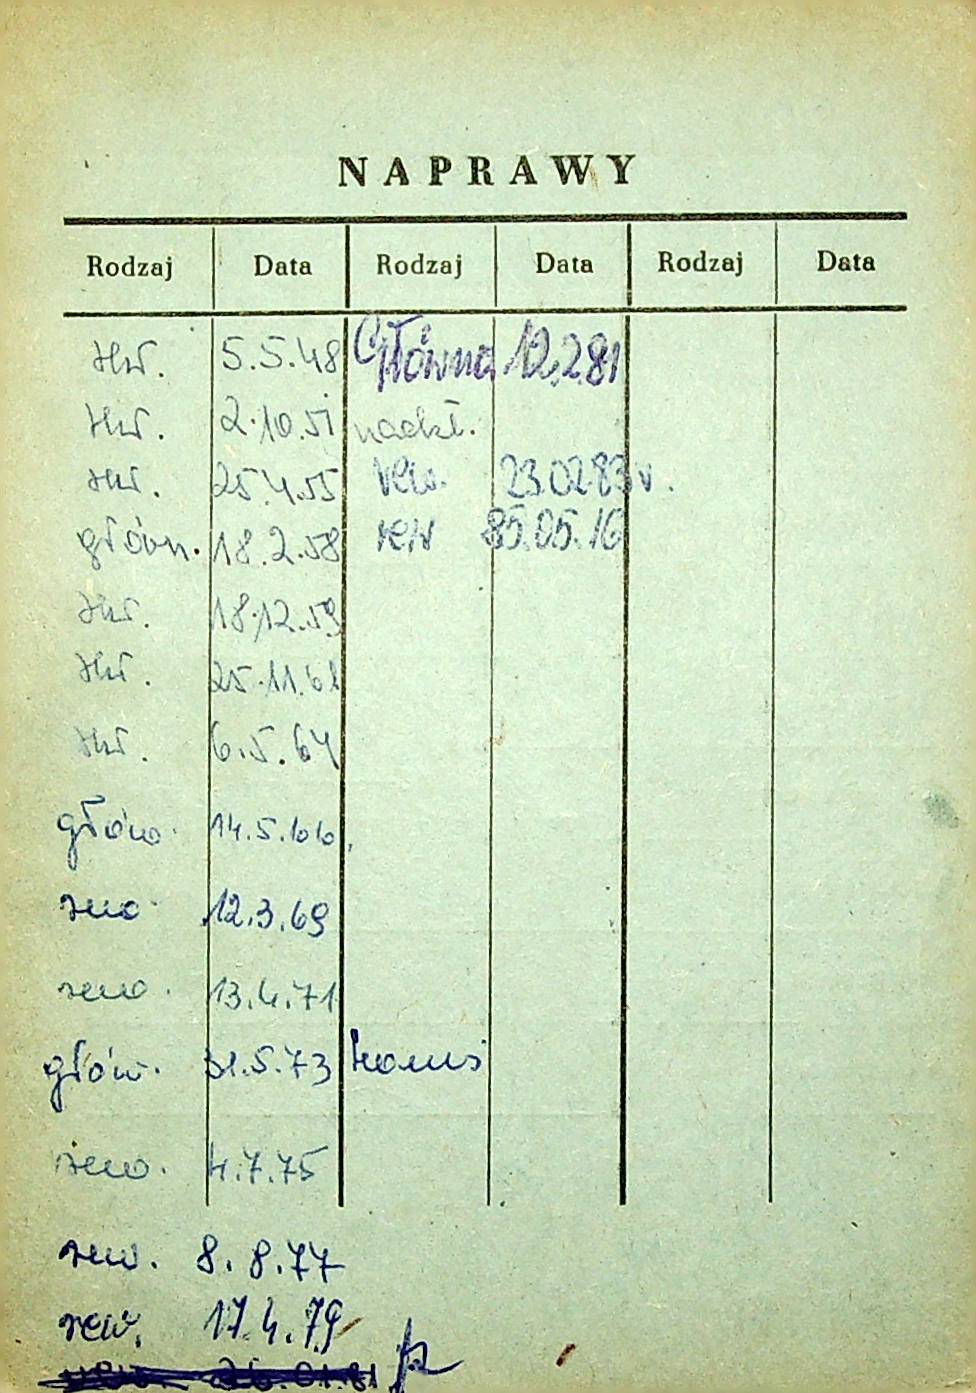 NAPRAWY
Rodzaj Data Rodzaj Data Rodzaj Data
rew. 5.5.48 Główna 12.2.81
rew. 2.10.51
rew. 25.4.55 rew. 23.02.83r.
główn. 18.2.58 rew 85.05.16
rew. 18.12.59
rew. 25.11.61
rew. 6.5.64
główn. 14.5.66.
rew. 12.3.69
rew. 13.4.71
główn. 31.5.73
rew. 4.7.75
rew. 8.8.77
rew. 17.4.79
rew. 26.01.81